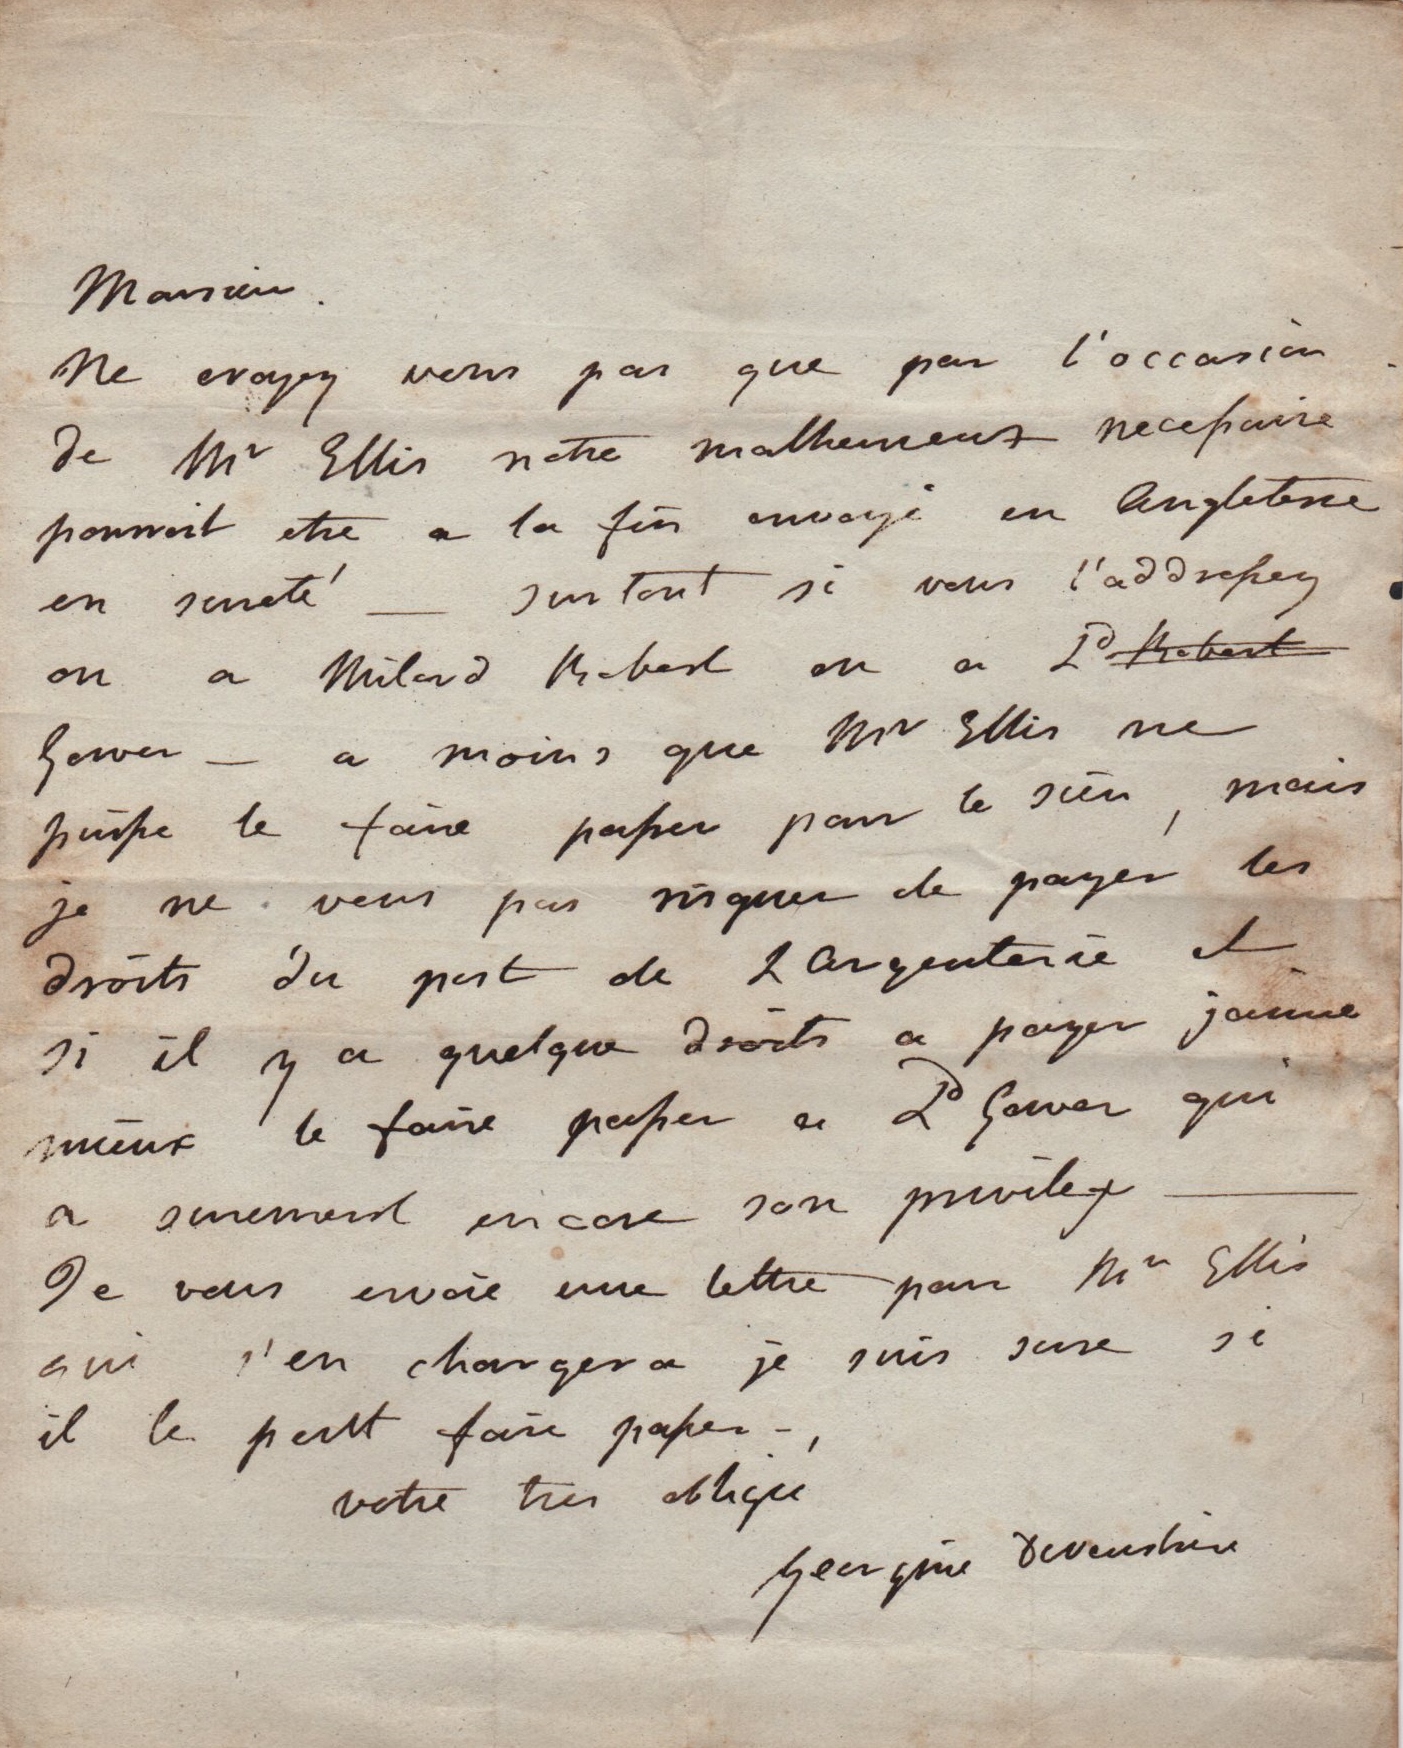 Monsieur.
Ne croyez vous pas que par l'occasion
de Mr Ellis notre malheureux necessaire
pourroit etre a la fin envoyé en Angleterre
en sureté — surtout si vous l'addressez
ou a Milord Robert ou a Ld Robert
Gower — a moins que Mr Ellis ne
puisse le faire passer pour le sien, mais
je ne veus pas risquer de payer les
droits du port de L Argenterie et
si il y a quelque droits a payer j'aime
mieux le faire passer a Ld Gower qui
a surement encore son privilege —
Je vous envoie une lettre pour Mr Ellis
qui s'en chargera je suis sure si
il le peut faire passer -,
votre tres obligé
Georgine Devonshire